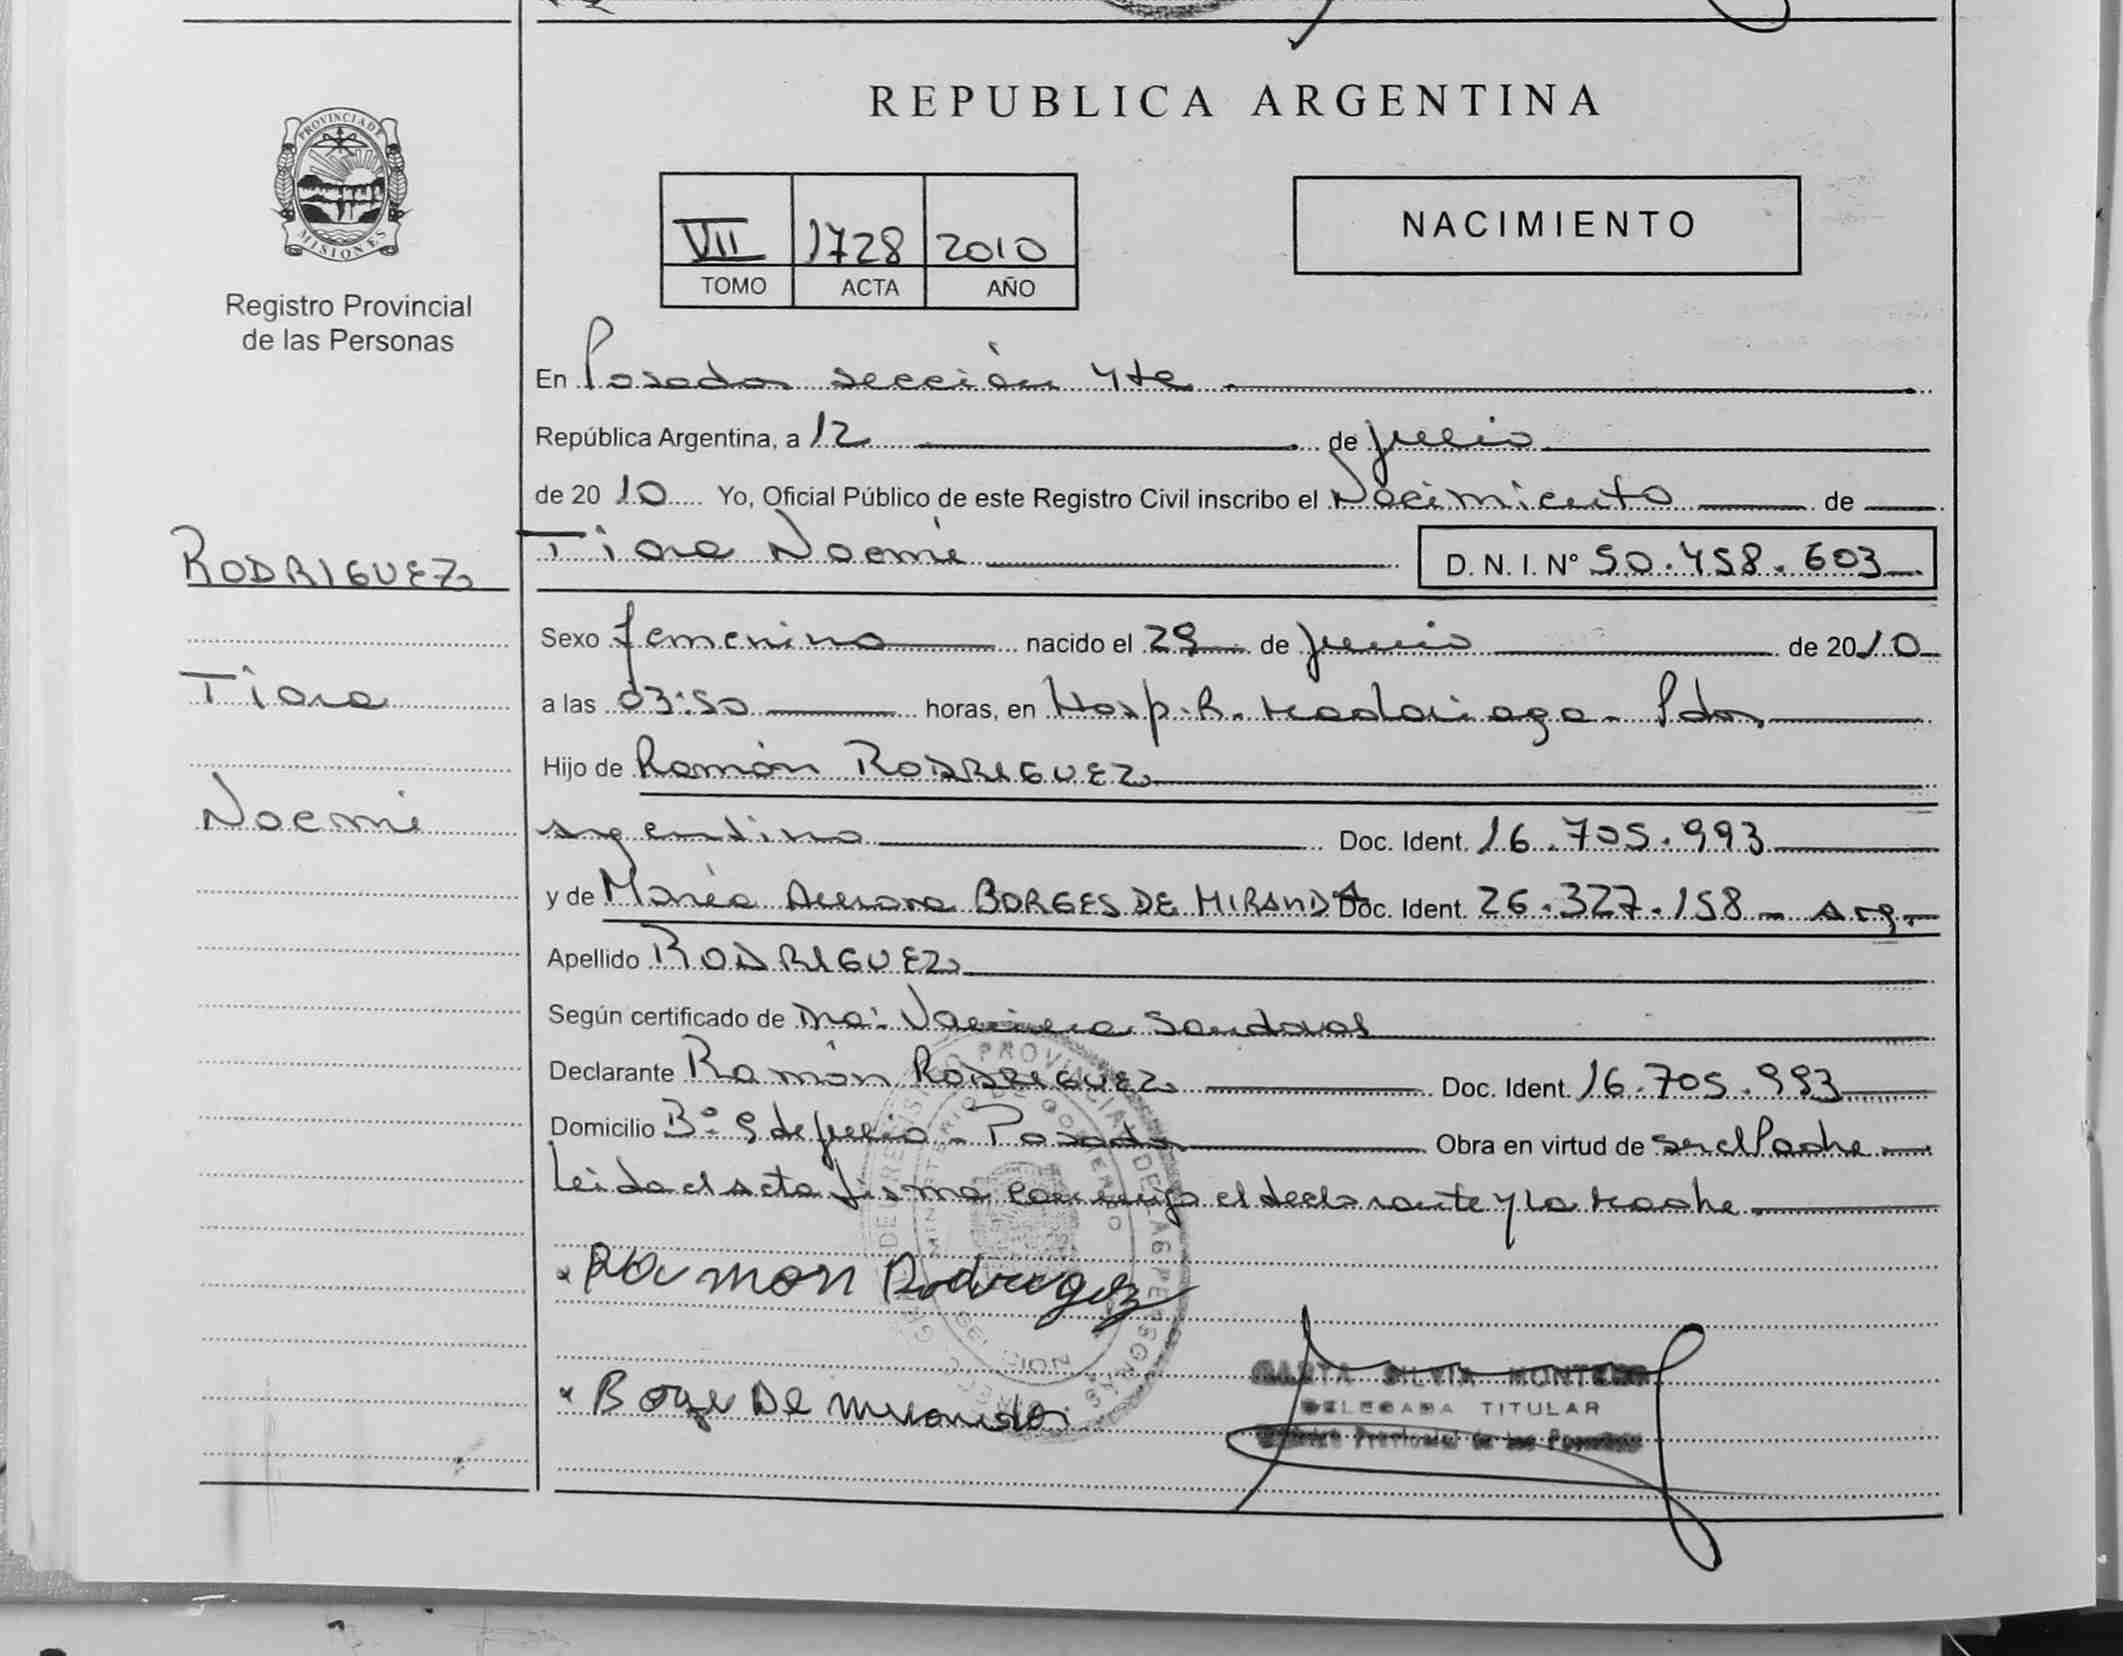 PROVINCIA DE
MISIONES
Registro Provincial
de las Personas
RODRIGUEZ
Tiara
Noemi
REPUBLICA ARGENTINA
VII 1728 2010
TOMO ACTA AÑO
NACIMIENTO
En Posadas sección 4ta
República Argentina, a 12 de julio
de 2010 Yo, Oficial Público de este Registro Civil inscribo el Nacimiento de
Tiara Noemí D. N. I. Nº 50.458.603
Sexo femenino nacido el 29 de junio de 2010
a las 03:50 horas, en Hosp. R. Madariaga - Pdas
Hijo de Ramón RODRIGUEZ
argentino Doc. Ident. 16.705.993
y de María BORGES DE MIRANDA Doc. Ident. 26.327.158 - Arg.
Apellido RODRIGUEZ
Según certificado de Dra: Sandoval
Declarante Ramón RODRIGUEZ Doc. Ident. 16.705.993
Domicilio Bº 9 de julio - Posadas Obra en virtud de ser el Padre
Leida el acta firma conmigo el declarante y la madre
Ramon Rodriguez
De Miranda
SILVIA MONTERO
DELEGADA TITULAR
Provincial de las Personas